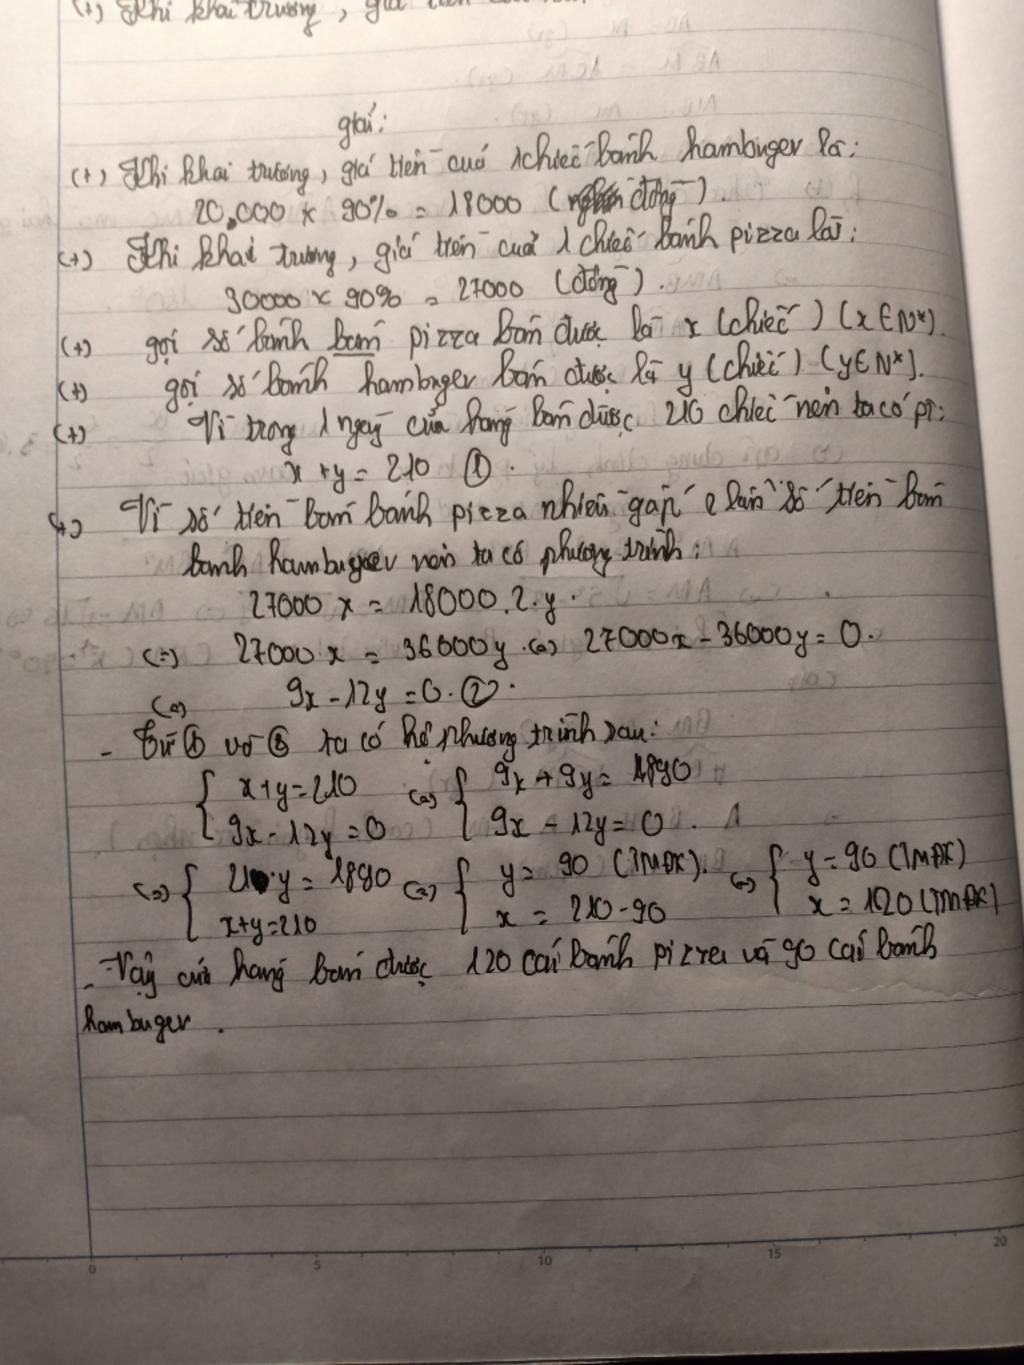 (+) Khi khai trương, giá tiền
giải:
(+) Khi khai trương, giá tiền của 1 chiếc bánh hambuger là:
20,000 x 90% = 18000 (đồng).
(+) Khi khai trương, giá tiền của 1 chiếc bánh pizza là:
30000 x 90% = 27000 (đồng).
(+) gọi số bánh pizza bán được là x (chiếc) (x∈N*).
(+) gọi số bánh hambuger bán được là y (chiếc) (y∈N*).
(+) Vì trong 1 ngày cửa hàng bán được 210 chiếc nên ta có pt:
x + y = 210 ①.
(+) Vì số tiền bán bánh pizza nhiều gấp 2 lần số tiền bán
bánh hambuger nên ta có phương trình:
27000 x = 18000.2.y.
(=) 27000 x = 36000y (=) 27000x - 36000y = 0.
(=) 9x - 12y = 0. ②.
- Từ ① và ② ta có hệ phương trình sau:
{ x+y=210 (=) { 9x + 9y = 1890
9x - 12y = 0 9x - 12y = 0
(=) { 21y = 1890 (=) { y = 90 (TMĐK). (=) { y = 90 (TMĐK)
x+y=210 x = 210-90 x = 120 (TMĐK)
- Vậy cửa hàng bán được 120 cái bánh pizza và 90 cái bánh
hambuger.
0 5 10 15 20